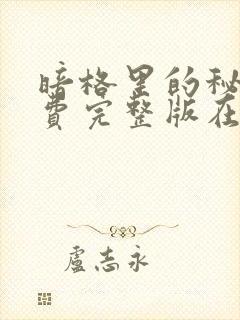 暗格里的秘
费完整版在
卢志永